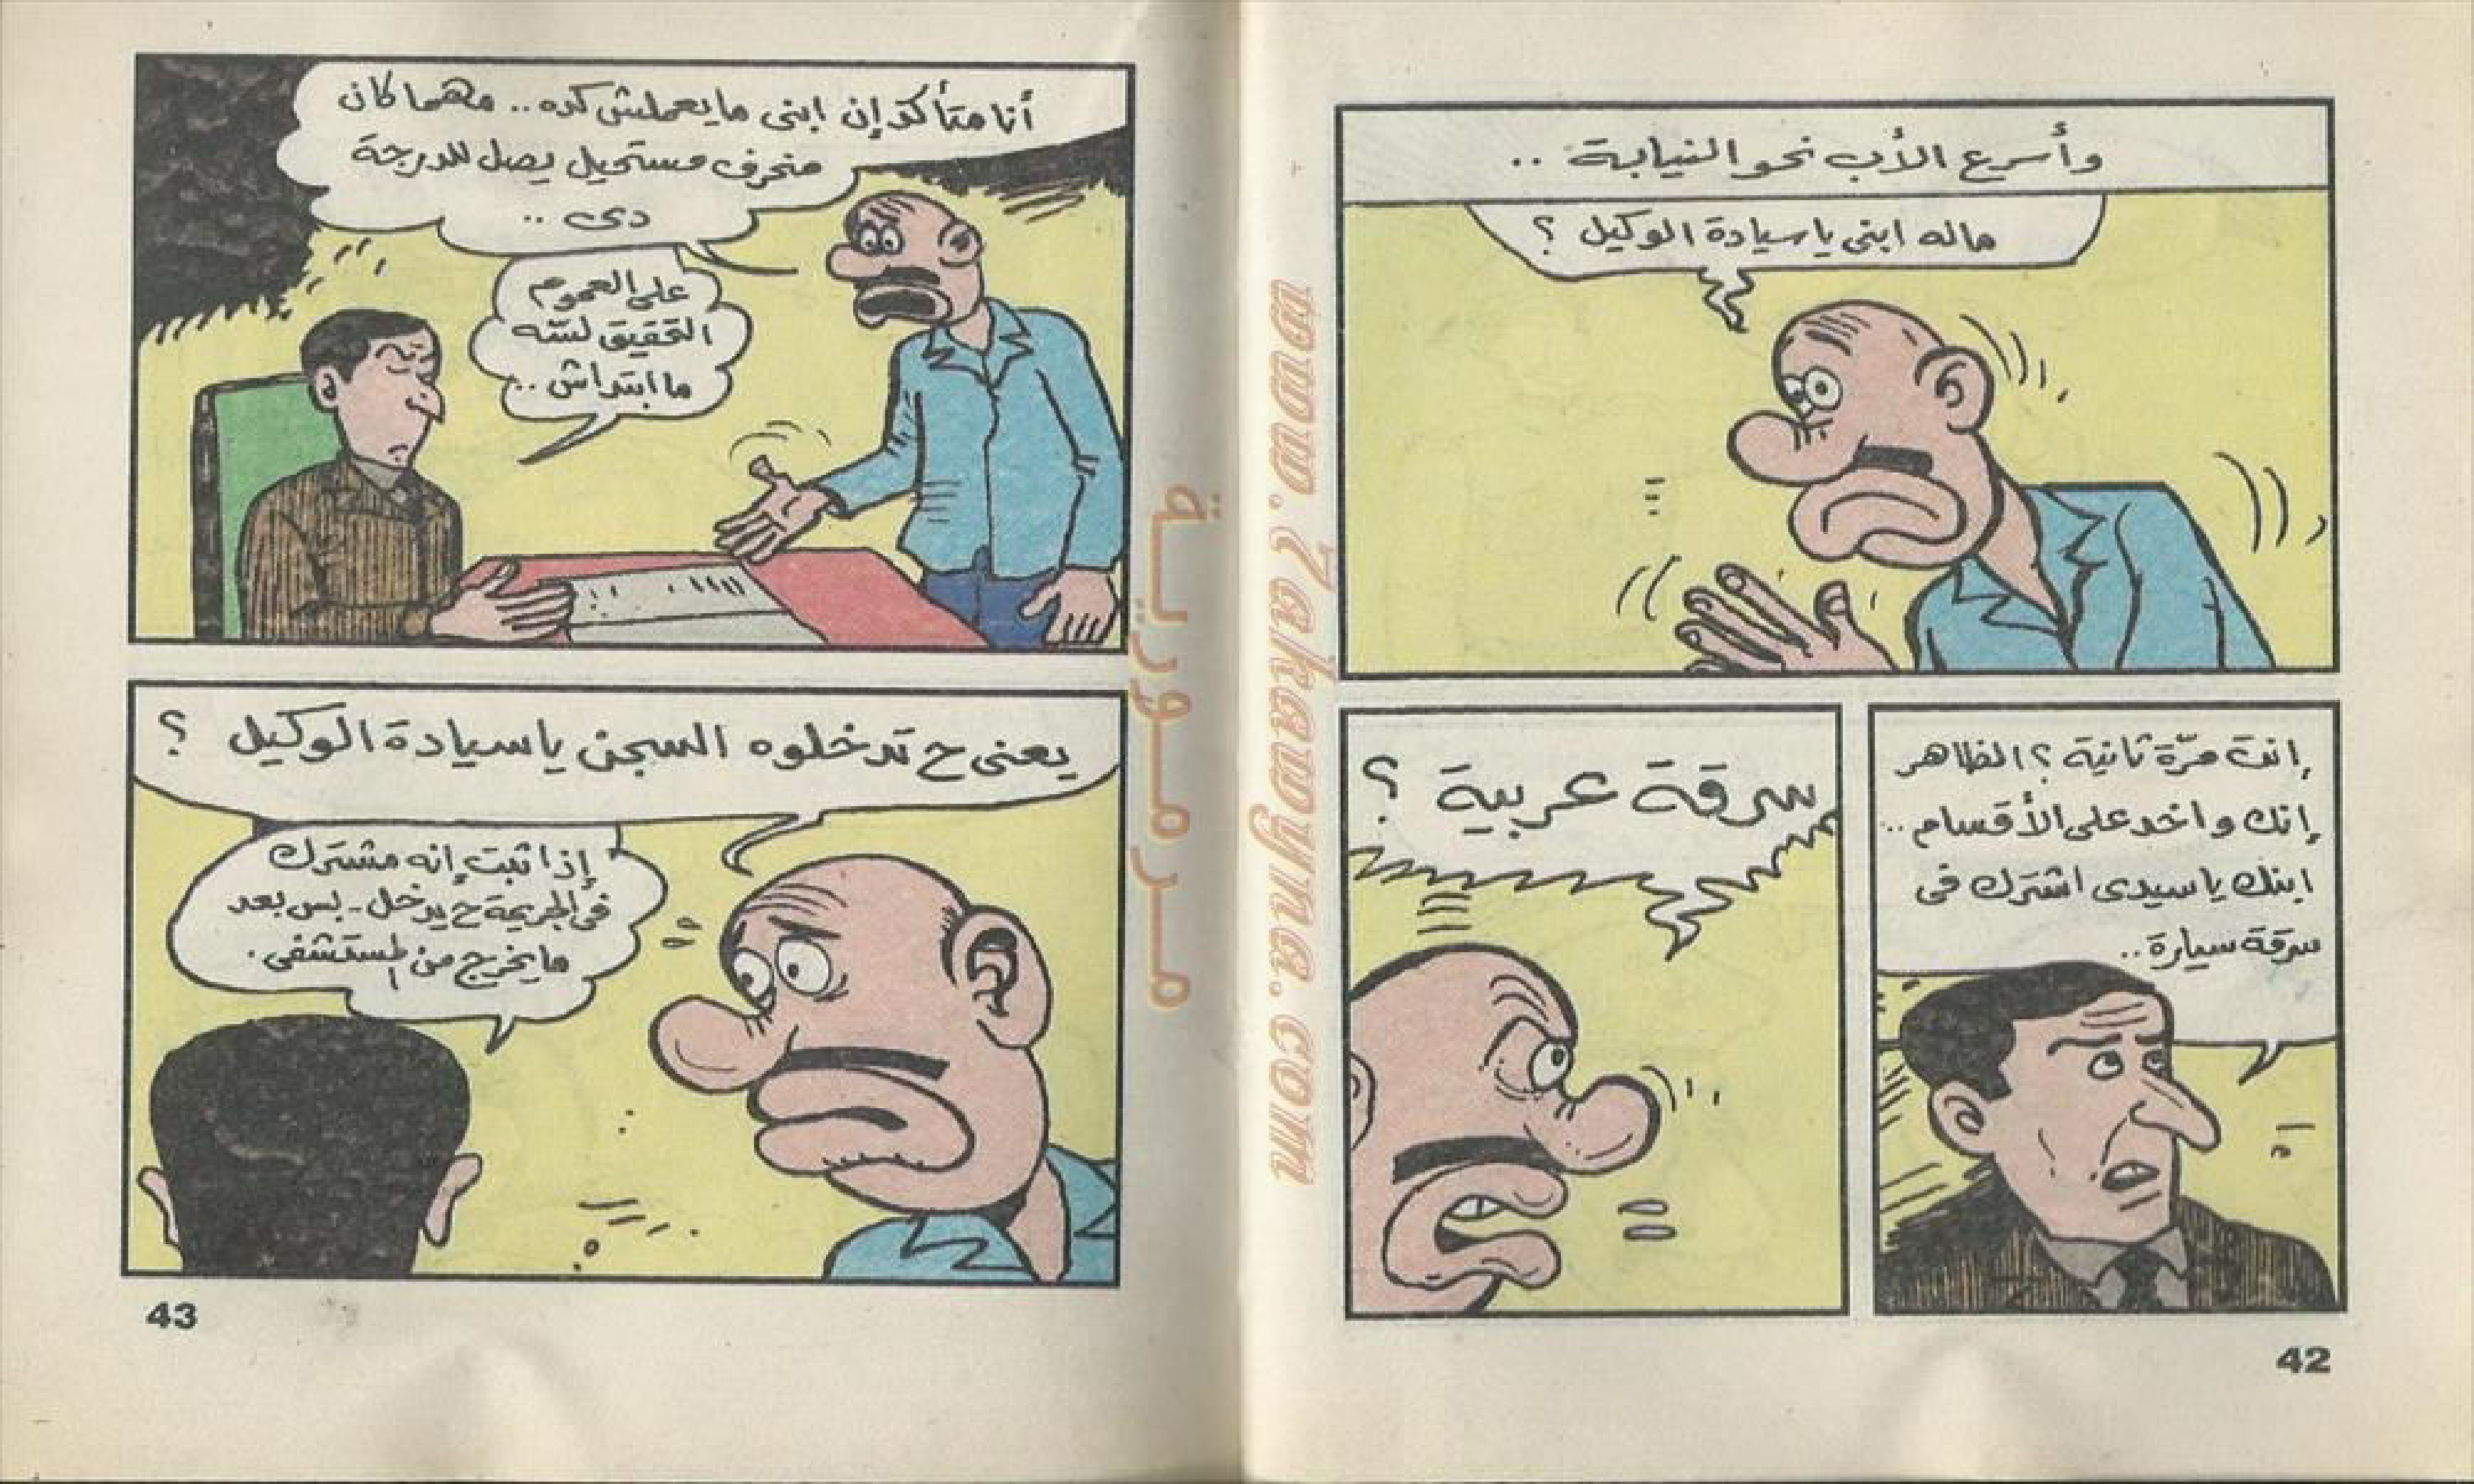 وأسرع الأب نحو النيابة ..
ماله ابنى ياسيادة الوكيل ؟
إنت مرّة ثانية ؟ الظاهر
إنك واخد على الأقسام ..
ابنك ياسيدى اشترك فى
سرقة سيارة ..
سرقة عربية ؟
42
أنا متأكد إن ابنى مايعملش كده .. مهما كان
منحرف مستحيل يصل للدرجة
دى ..
على العموم
التحقيق لسّه
ما ابتداش ..
يعنى ح تدخلوه السجن ياسيادة الوكيل ؟
إذا ثبت إنه مشترك
فى الجريمة ح يدخل - بس بعد
مايخرج من المستشفى .
43
مرمورية
www.7akawyna.com